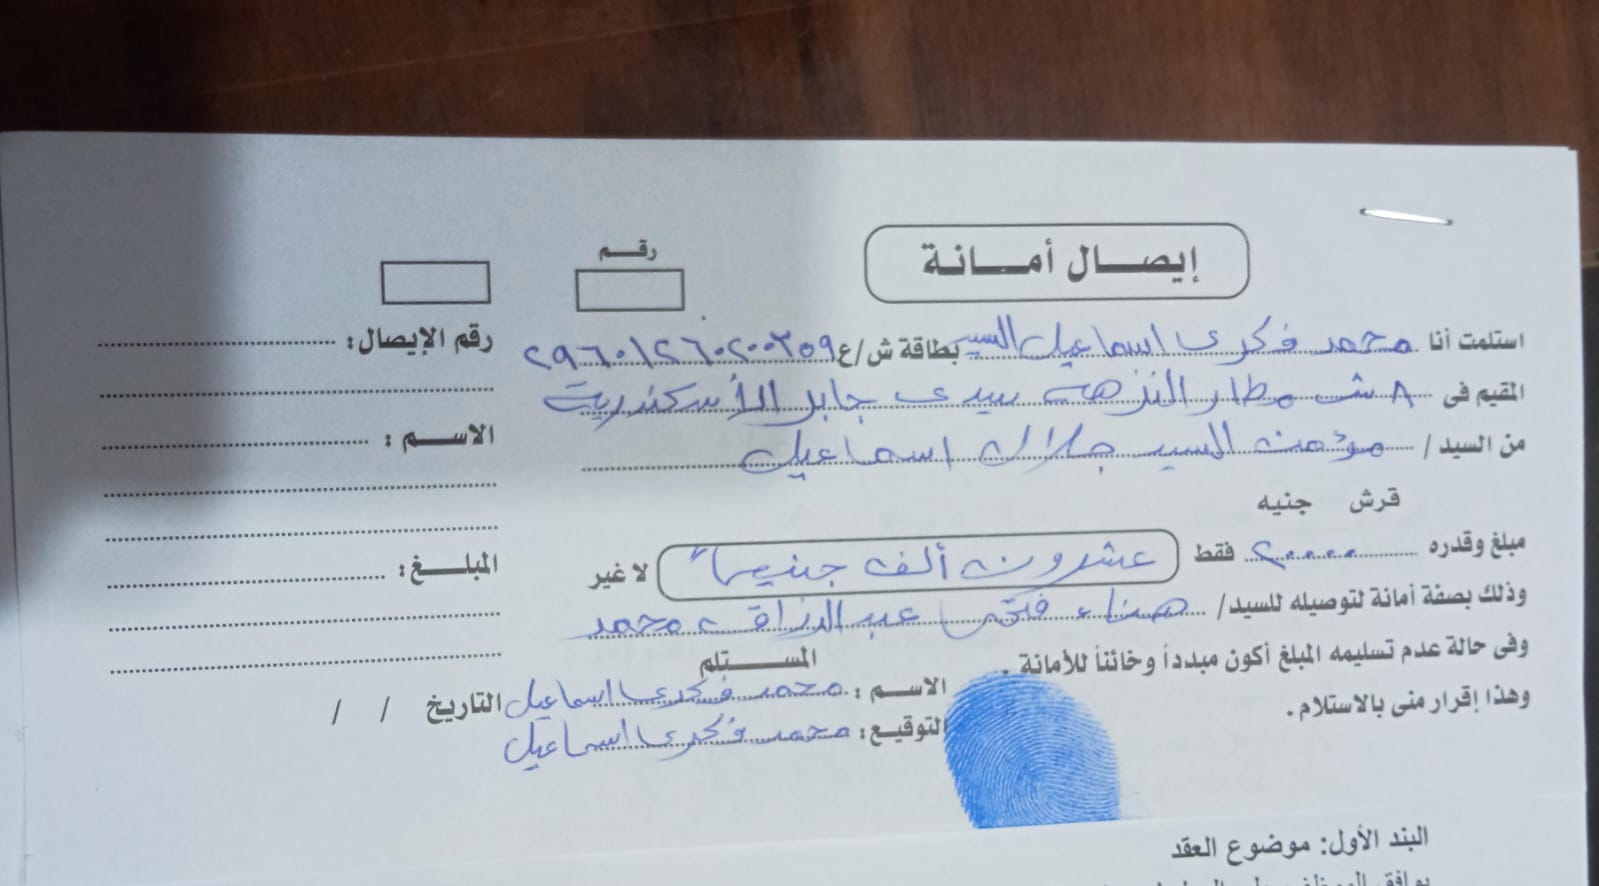 إيصال أمانة
رقم
استلمت أنا محمد فكرى اسماعيل السيد بطاقة ش/ع ٢٩٦٠١٢٦٠٢٠٠٣٥٩
المقيم فى ٨ ش مطار النزهه سيدى جابر الأسكندرية
من السيد / مؤمن السيد جلال اسماعيل
قرش جنيه
مبلغ وقدره ٢٠٠٠٠ فقط عشرون ألف جنيهاً لا غير
وذلك بصفة أمانة لتوصيله للسيد/ هناء فتحى عبد الرزاق محمد
وفى حالة عدم تسليمه المبلغ أكون مبدداً وخائناً للأمانة .
وهذا إقرار منى بالاستلام .
المستلم
الاسم : محمد فكرى اسماعيل التاريخ / /
التوقيع : محمد فكرى اسماعيل
رقم الإيصال :
الاسم :
المبلغ :
البند الأول: موضوع العقد